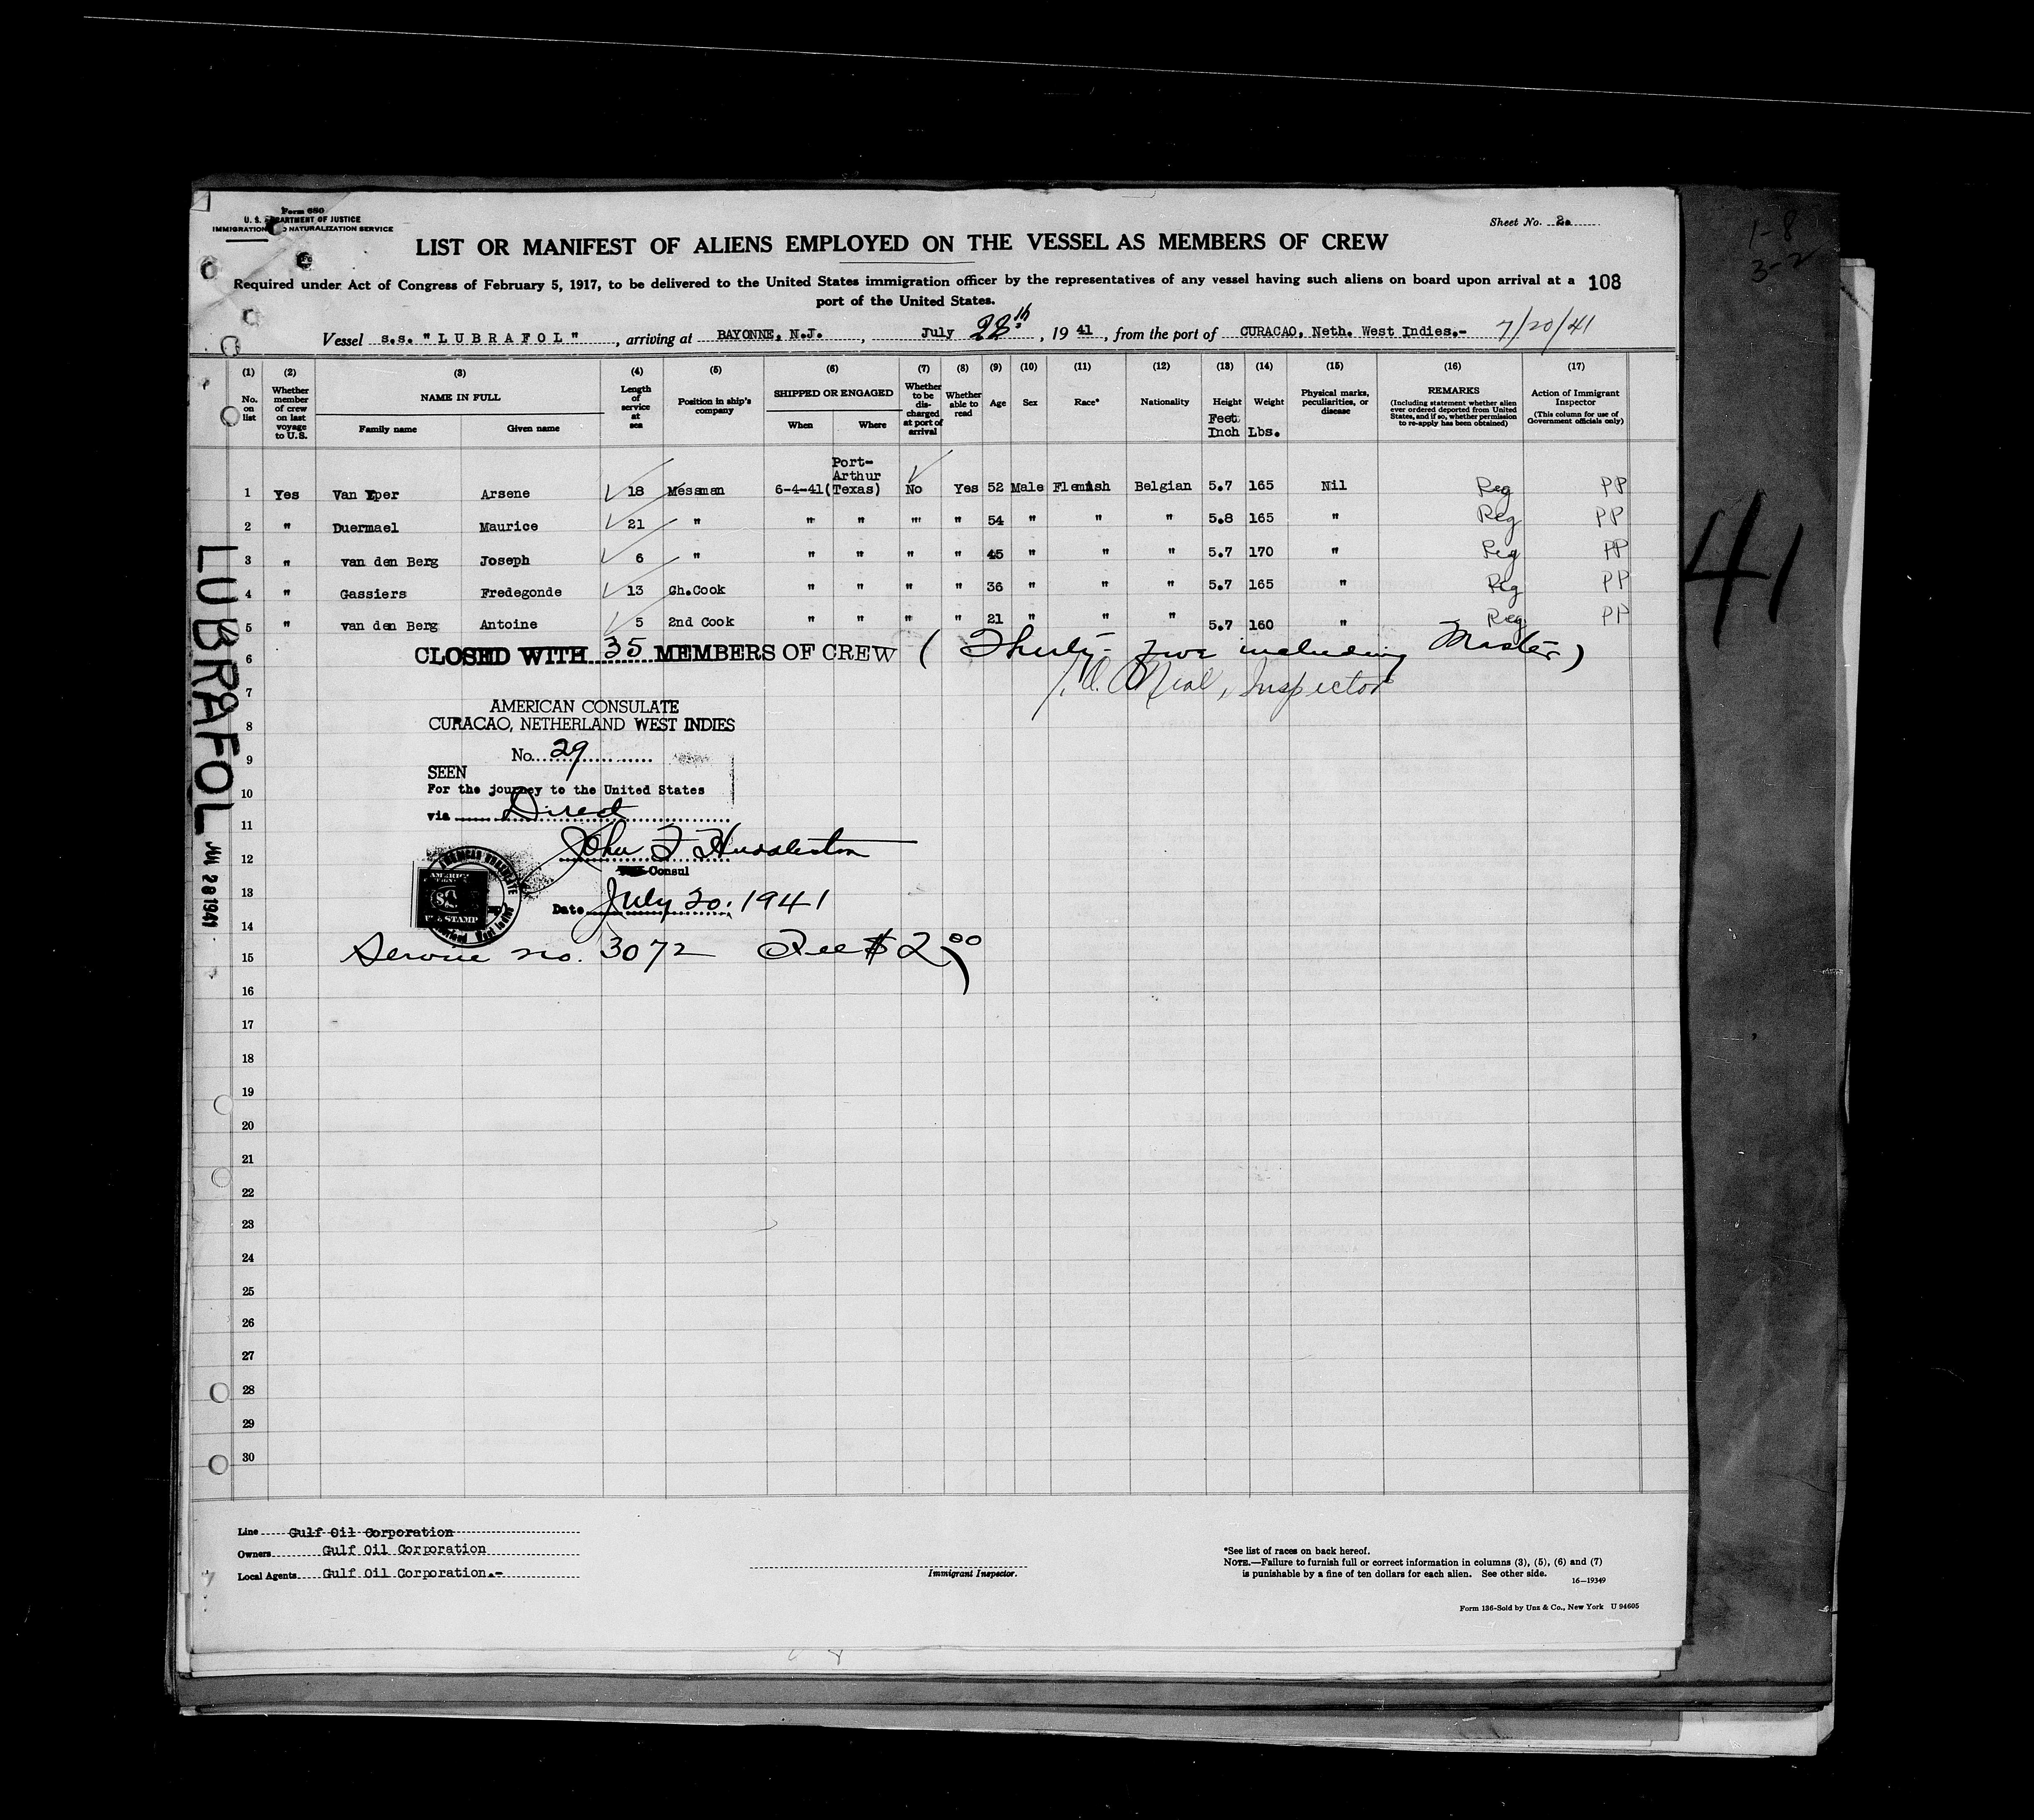 Form 680
U. S. DEPARTMENT OF JUSTICE
IMMIGRATION AND NATURALIZATION SERVICE
Sheet No. 2.
LIST OR MANIFEST OF ALIENS EMPLOYED ON THE VESSEL AS MEMBERS OF CREW
Required under Act of Congress of February 5, 1917, to be delivered to the United States immigration officer by the representatives of any vessel having such aliens on board upon arrival at a 108
port of the United States.
Vessel s.s. "LUBRAFOL", arriving at BAYONNE, N.J., July 28th, 1941, from the port of CURACAO, Neth. West Indies.- 7/20/41
(1) (2) (3) (4) (5) (6) (7) (8) (9) (10) (11) (12) (13) (14) (15) (16) (17)
No. on list
Whether member of crew on last voyage to U.S.
NAME IN FULL
Family name Given name
Length of service at sea
Position in ship's company
SHIPPED OR ENGAGED
When Where
Whether to be discharged at port of arrival
Whether able to read
Age
Sex
Race*
Nationality
Height Feet Inch
Weight Lbs.
Physical marks, peculiarities, or disease
REMARKS
(Including statement whether alien ever ordered deported from United States, and if so, whether permission to re-apply has been obtained)
Action of Immigrant Inspector
(This column for use of Government officials only)
1 Yes Van Yper Arsene 18 Messman 6-4-41 (Port-Arthur Texas) No Yes 52 Male Flemish Belgian 5.7 165 Nil Reg PP
2 " Duermael Maurice 21 " " " " " 54 " " " 5.8 165 " Reg PP
3 " van den Berg Joseph 6 " " " " " 45 " " " 5.7 170 " Reg PP
4 " Gassiers Fredegonde 13 Ch.Cook " " " " 36 " " " 5.7 165 " Reg PP
5 " van den Berg Antoine 5 2nd Cook " " " " 21 " " " 5.7 160 " Reg PP
6 CLOSED WITH 35 MEMBERS OF CREW ( Thirty- including Master)
7 Neal, Inspector
AMERICAN CONSULATE
8 CURACAO, NETHERLAND WEST INDIES
9 No. 29
SEEN
10 For the journey to the United States
11 via Direct
12 John F Huddleston
Consul
13 Date July 20, 1941
14
15 Service no. 3072 Fee $2.00
16
17
18
19
20
21
22
23
24
25
26
27
28
29
30
LUBRAFOL JUL 28 1941
41
1-8
3-2
Line Gulf Oil Corporation
Owners Gulf Oil Corporation
Local Agents Gulf Oil Corporation.-
Immigrant Inspector.
*See list of races on back hereof.
NOTE.—Failure to furnish full or correct information in columns (3), (5), (6) and (7)
is punishable by a fine of ten dollars for each alien. See other side.
16—19349
Form 136-Sold by Unz & Co., New York U 94605